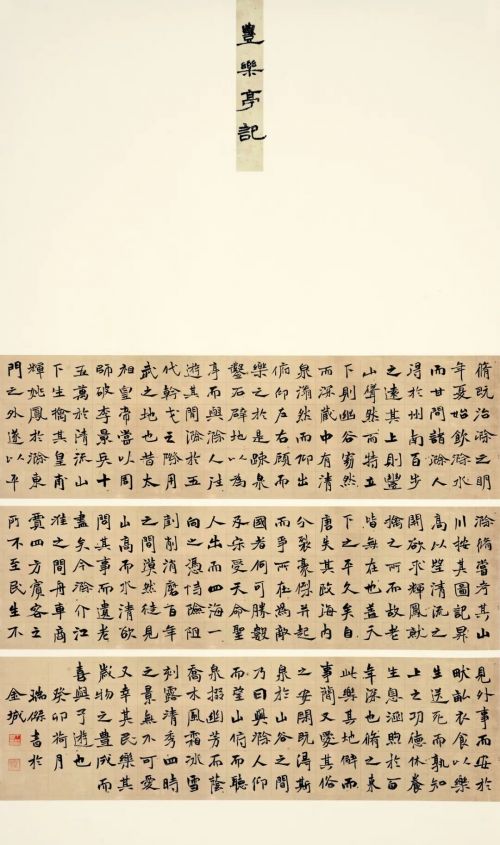 豐樂亭記
脩既治滁之明
年夏始飲滁水
而甘問諸滁人
得於州南百步
之遠其上則豐
山聳然而特立
下則幽谷窈然
而深藏中有清
泉滃然而仰出
俯仰左右顧而
樂之於是疏泉
鑿石辟地以為
亭而與滁人往
遊其間滁於五
代幹戈之際用
武之地也昔太
祖皇帝嘗以周
師破李景兵十
五萬於清流山
下生擒其皇甫
輝姚鳳於滁東
門之外遂以平
滁脩嘗考其山
川按其圖記昇
高以望清流之
關欲求輝鳳就
擒之所而故老
皆無在也蓋天
下之平久矣自
唐失其政海內
分裂豪傑並起
而爭所在為敵
國者何可勝數
及宋受天命聖
人出而四海一
向之憑恃險阻
剗削消磨百年
之間漠然徒見
山高而水清欲
問其事而遺老
盡矣今滁介江
淮之間舟車商
賈四方賓客之
所不至民生不
見外事而安於
畎畝衣食以樂
生送死而孰知
上之功德休養
生息涵煦於百
年深也脩之來
此樂其地僻而
事簡又愛其俗
之安閑既得斯
泉於山谷之間
乃曰與滁人仰
而望山俯而聽
泉掇幽芳而蔭
喬木風霜冰雪
刻露清秀四時
之景無不可愛
又幸其民樂其
歲物之豐成而
喜與予遊也
癸卯荷月
瑞傑書於
金城